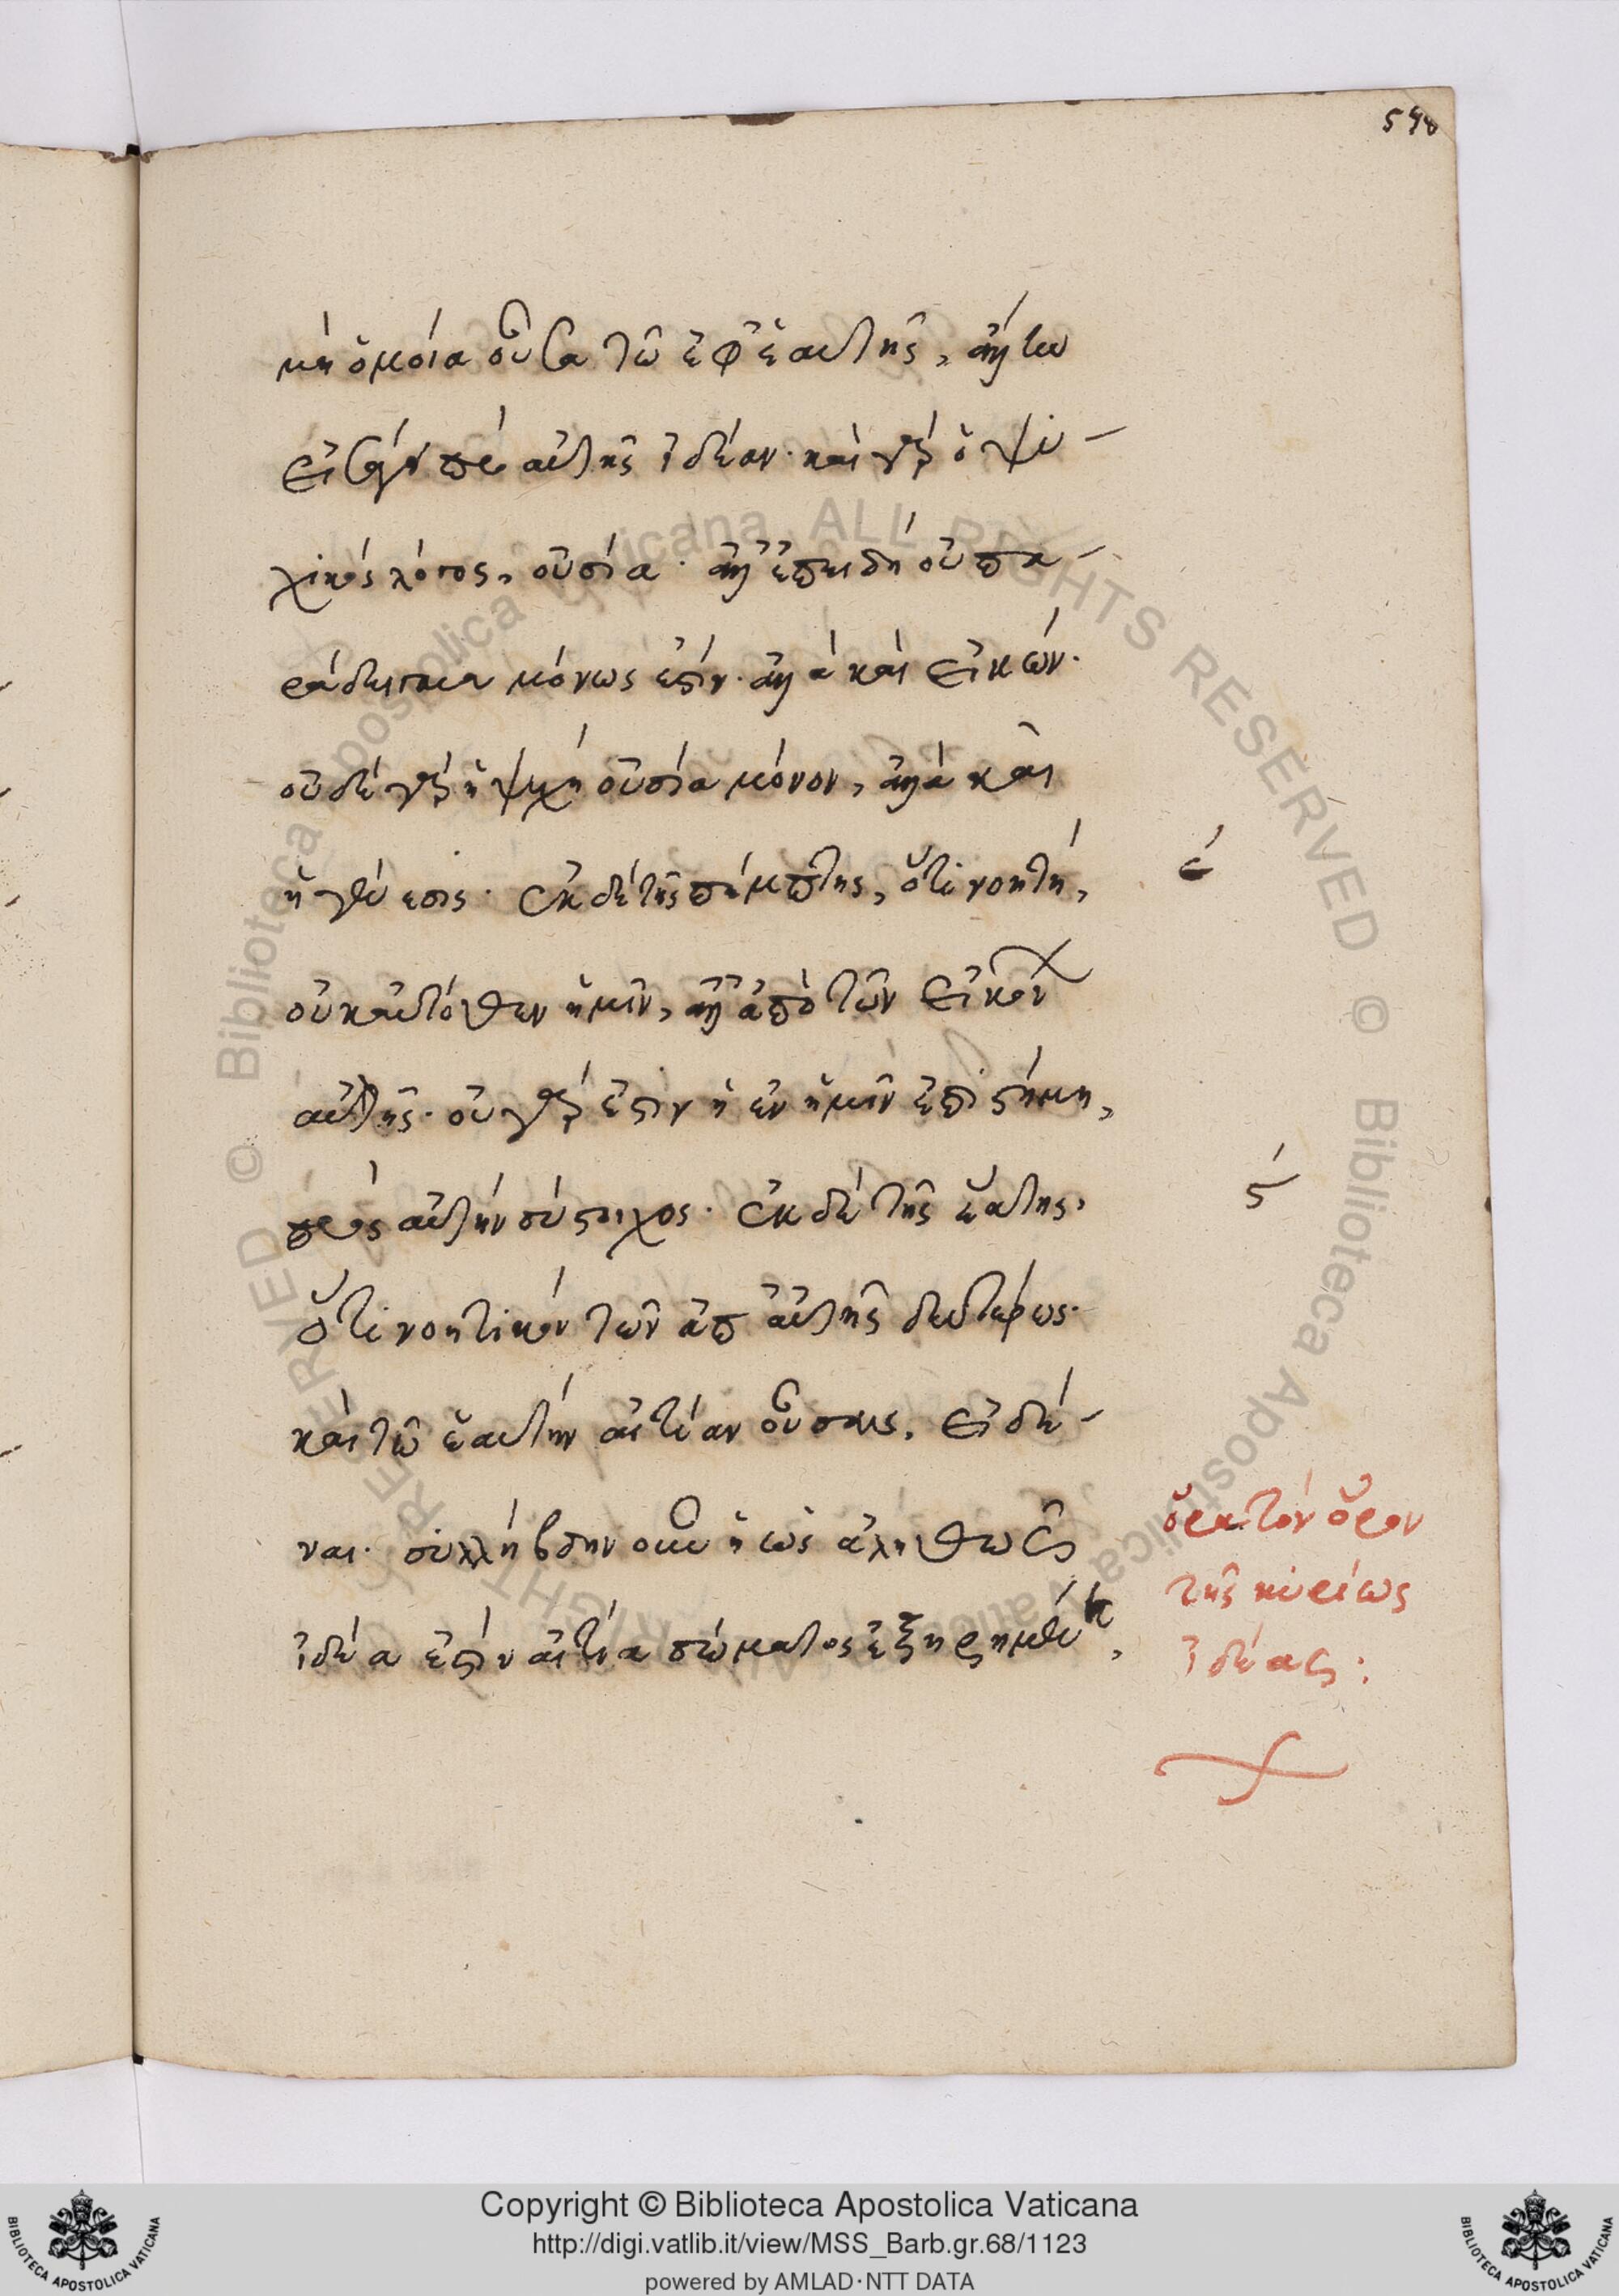 548
μὴ ὁμοία οὖσα τῶ ἐφ' ἑαυτῆς, ἀλλὰ τὴν
εἰς τὴν πρὸ αὐτῆς ἰδέαν· καὶ γὰρ ὁ ψυ-
χικὸς λόγος, οὐσία· ἀλλ' ἐπειδὴ οὐ πα-
ράδειγμα μόνως ἐστίν· ἀλλὰ καὶ εἰκών·
οὐδὲ γὰρ ἡ ψυχὴ οὐσία μόνον, ἀλλὰ καὶ
ἡ γένεσις· ἐκ δὲ τῆς πέμπτης, ὅτι νοητὴ,
οὐκ αὐτόθεν ἡμῖν, ἀλλ' ἀπὸ τῶν εἰκόνων
αὐτῆς· οὐ γάρ ἐστιν ἡ ἐν ἡμῖν ἐπιστήμη,
πρὸς αὐτὴν σύστοιχος· ἐκ δὲ τῆς ἕκτης,
ὅτι νοητικὸν τῶν ἀπ' αὐτῆς δευτέρως·
καὶ τῶ ἑαυτὴν αἰτίαν οὖσαν, εἰδέ-
ναι· συλλήβδην οὖν ἡ ὡς ἀληθῶς
ἰδέα ἐστὶν αἰτία σώματος ἐξῃρημένη,
έ
ϛ´
ὅρα τὸν ὅρον
τῆς κυρίως
ἰδέας:
Copyright © Biblioteca Apostolica Vaticana
http://digi.vatlib.it/view/MSS_Barb.gr.68/1123
powered by AMLAD·NTT DATA
BIBLIOTECA APOSTOLICA VATICANA
BIBLIOTECA APOSTOLICA VATICANA
© Biblioteca Apostolica Vaticana, ALL RIGHTS RESERVED
© Biblioteca Apostolica Vaticana, ALL RIGHTS RESERVED